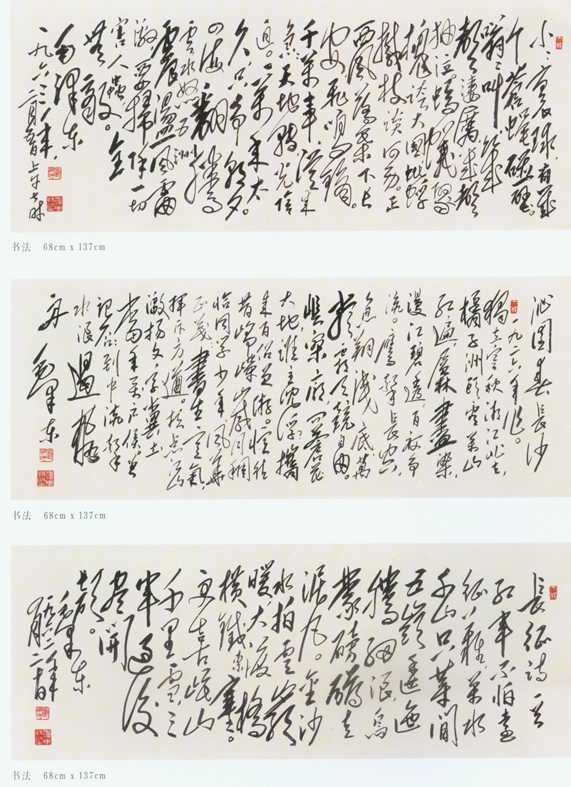 小小寰球有几
个苍蝇碰壁。
嗡嗡叫几声
凄厉几声
抽泣蚂蚁缘
槐大国蚍蜉
撼树谈何易。正
西风落叶下长
安飞鸣镝。
事从来
急天地转光阴
迫。一万年太
久只争朝夕。
四海翻腾
云水怒五洲
震荡风雷
激要扫除一切
害人虫。全
无敌。
毛泽东
一九六三年
书法 68cm x 137cm
沁园春长沙
一九二六年作。
独立寒秋湘江北去
橘子洲头看万山
红遍层林尽染
漫江碧透百舸争
流。鹰击长空
鱼翔浅底万
类霜天竞自由。
怅寥廓问苍茫
大地谁主沉浮携
来百侣曾游。忆往
昔峥嵘岁月稠
恰同学少年风华
正茂書生意气
挥斥方遒。指点江山
激扬文字粪土
当年万户侯曾
记否到中流击
水浪遏飞
舟 毛泽东
书法 68cm x 137cm
长征诗一首
红军不怕远
征难万水
千山只等闲
五岭逶迤
腾细浪乌
蒙磅礴走
泥丸。金沙
水拍云崖
暖大渡桥
横铁索寒。
更喜岷山
千里雪三
军过后
尽開
颜。
毛泽东
书法 68cm x 137cm